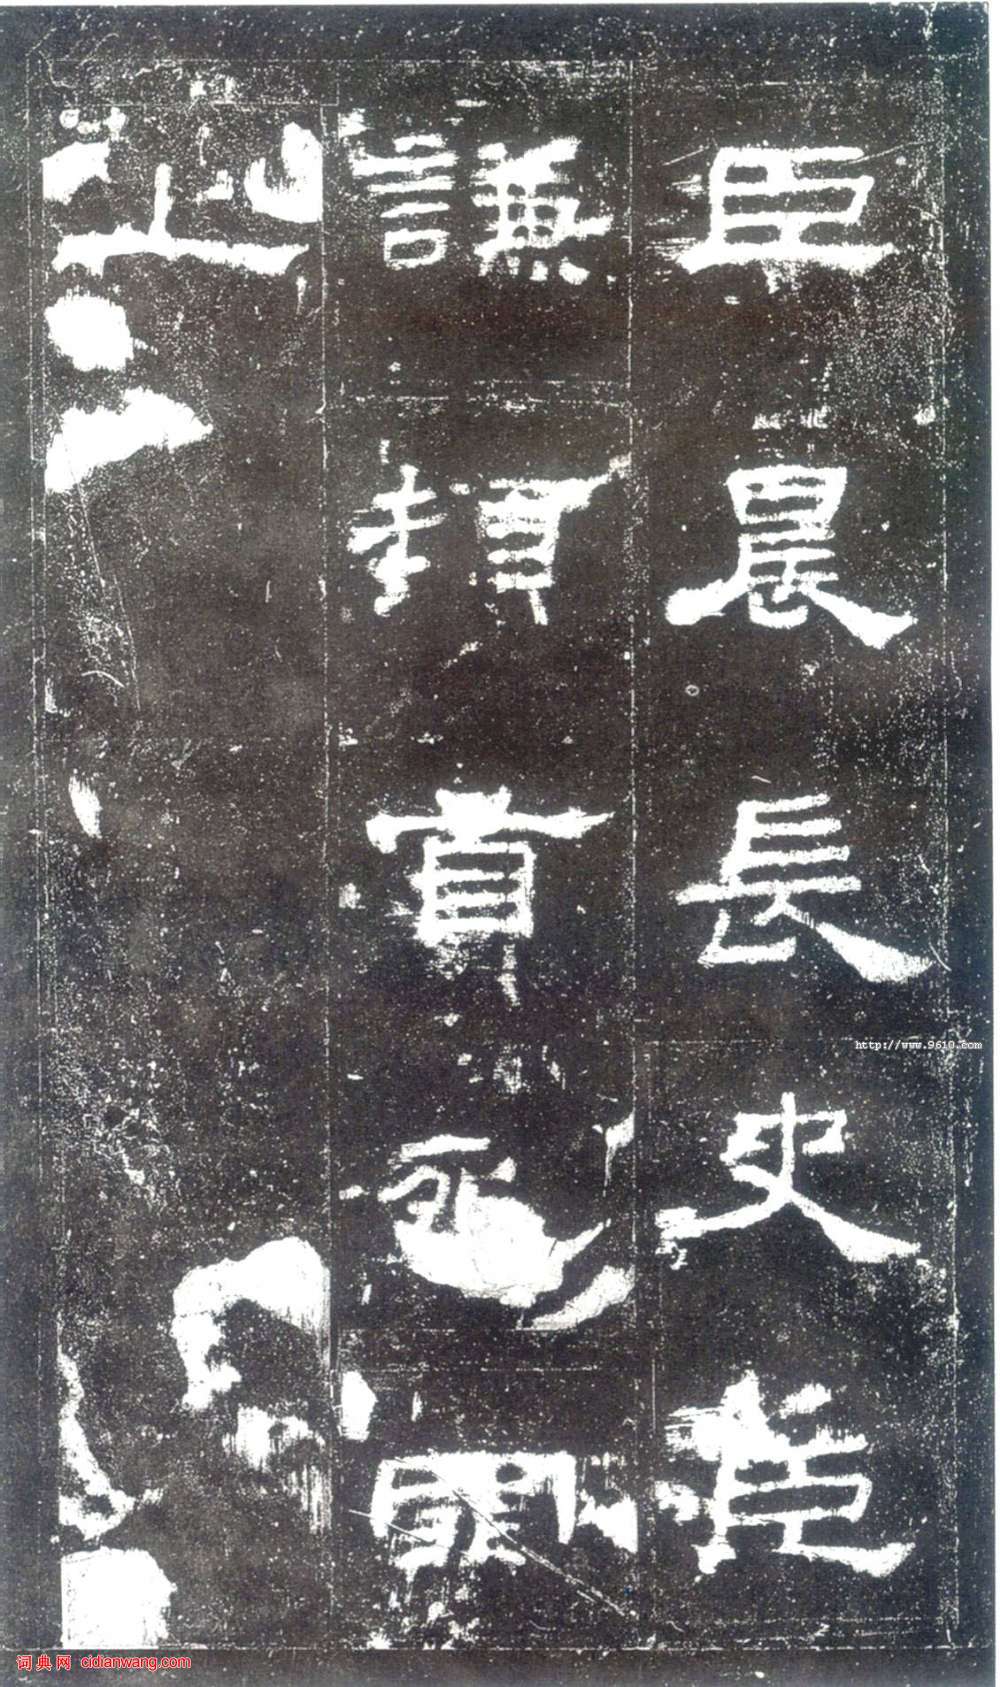 臣晨長史臣
謙頓首死罪
上
http://www.9610.com
词典网 cidianwang.com